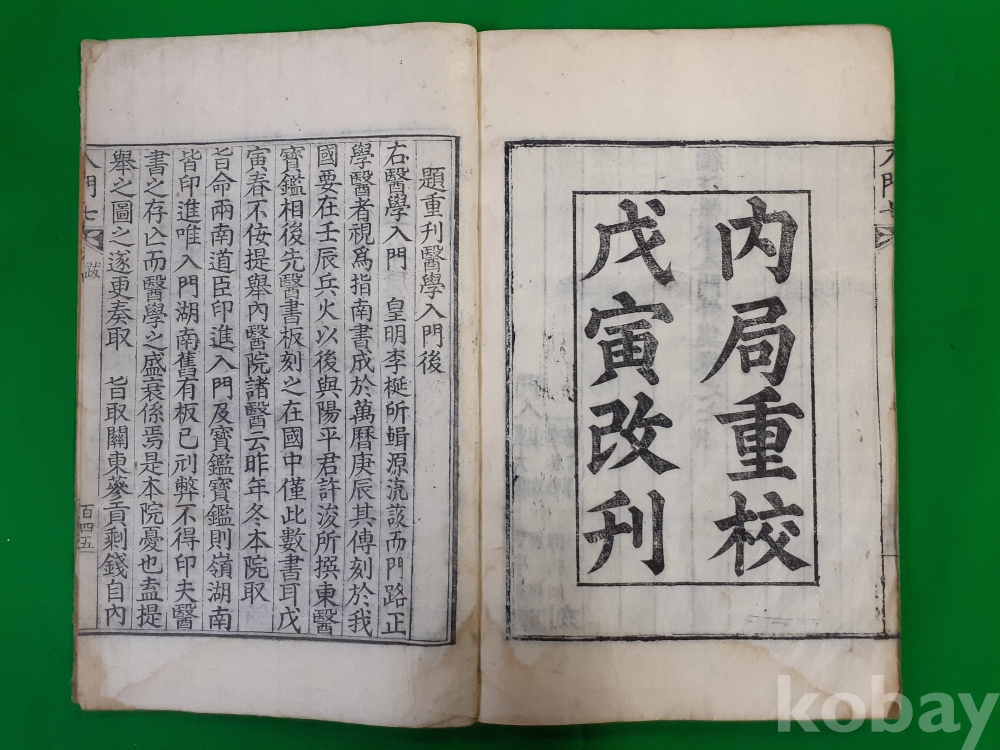 內局重校
戊寅改刊
題重刊醫學入門後
右醫學入門 皇明李梴所輯源流該而門路正
學醫者視爲指南書成於萬曆庚辰其傳刻於我
國要在壬辰兵火以後與陽平君許浚所撰東醫
寶鑑相後先醫書板刻之在國中僅此數書耳戊
寅春不侫提擧內醫院諸醫云昨年冬本院取
旨命兩南道臣印進入門及寶鑑寶鑑則嶺湖南
皆印進唯入門湖南舊有板已刓弊不得印夫醫
書之存亡而醫學之盛衰係焉是本院憂也盍提
舉之圖之遂更奏取 旨取關東蔘貢剩錢自內
入門七
跋
百四五
入門七
kobay